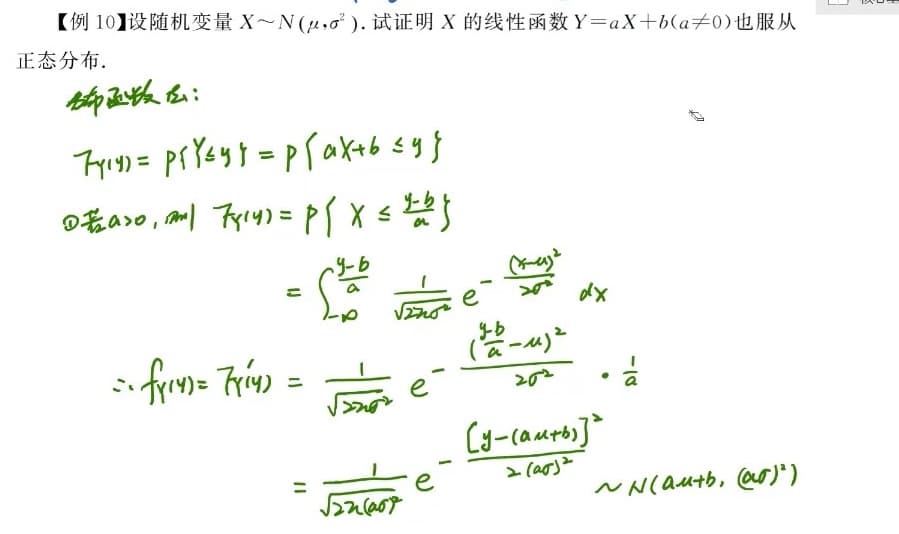 【例 10】设随机变量 X~N(μ,σ²). 试证明 X 的线性函数 Y=aX+b(a≠0)也服从
正态分布.
分布函数法:
F_Y(y) = P{Y≤y} = P{aX+b ≤ y}
①若a>0, 则 F_Y(y) = P{X ≤ \frac{y-b}{a}}
= ∫_{-∞}^{\frac{y-b}{a}} \frac{1}{\sqrt{2πσ²}} e^{-\frac{(x-μ)²}{2σ²}} dx
∴ f_Y(y) = F_Y'(y) = \frac{1}{\sqrt{2πσ²}} e^{-\frac{(\frac{y-b}{a}-μ)²}{2σ²}} · \frac{1}{a}
= \frac{1}{\sqrt{2π(aσ)²}} e^{-\frac{[y-(aμ+b)]²}{2(aσ)²}} ~ N(aμ+b, (aσ)²)